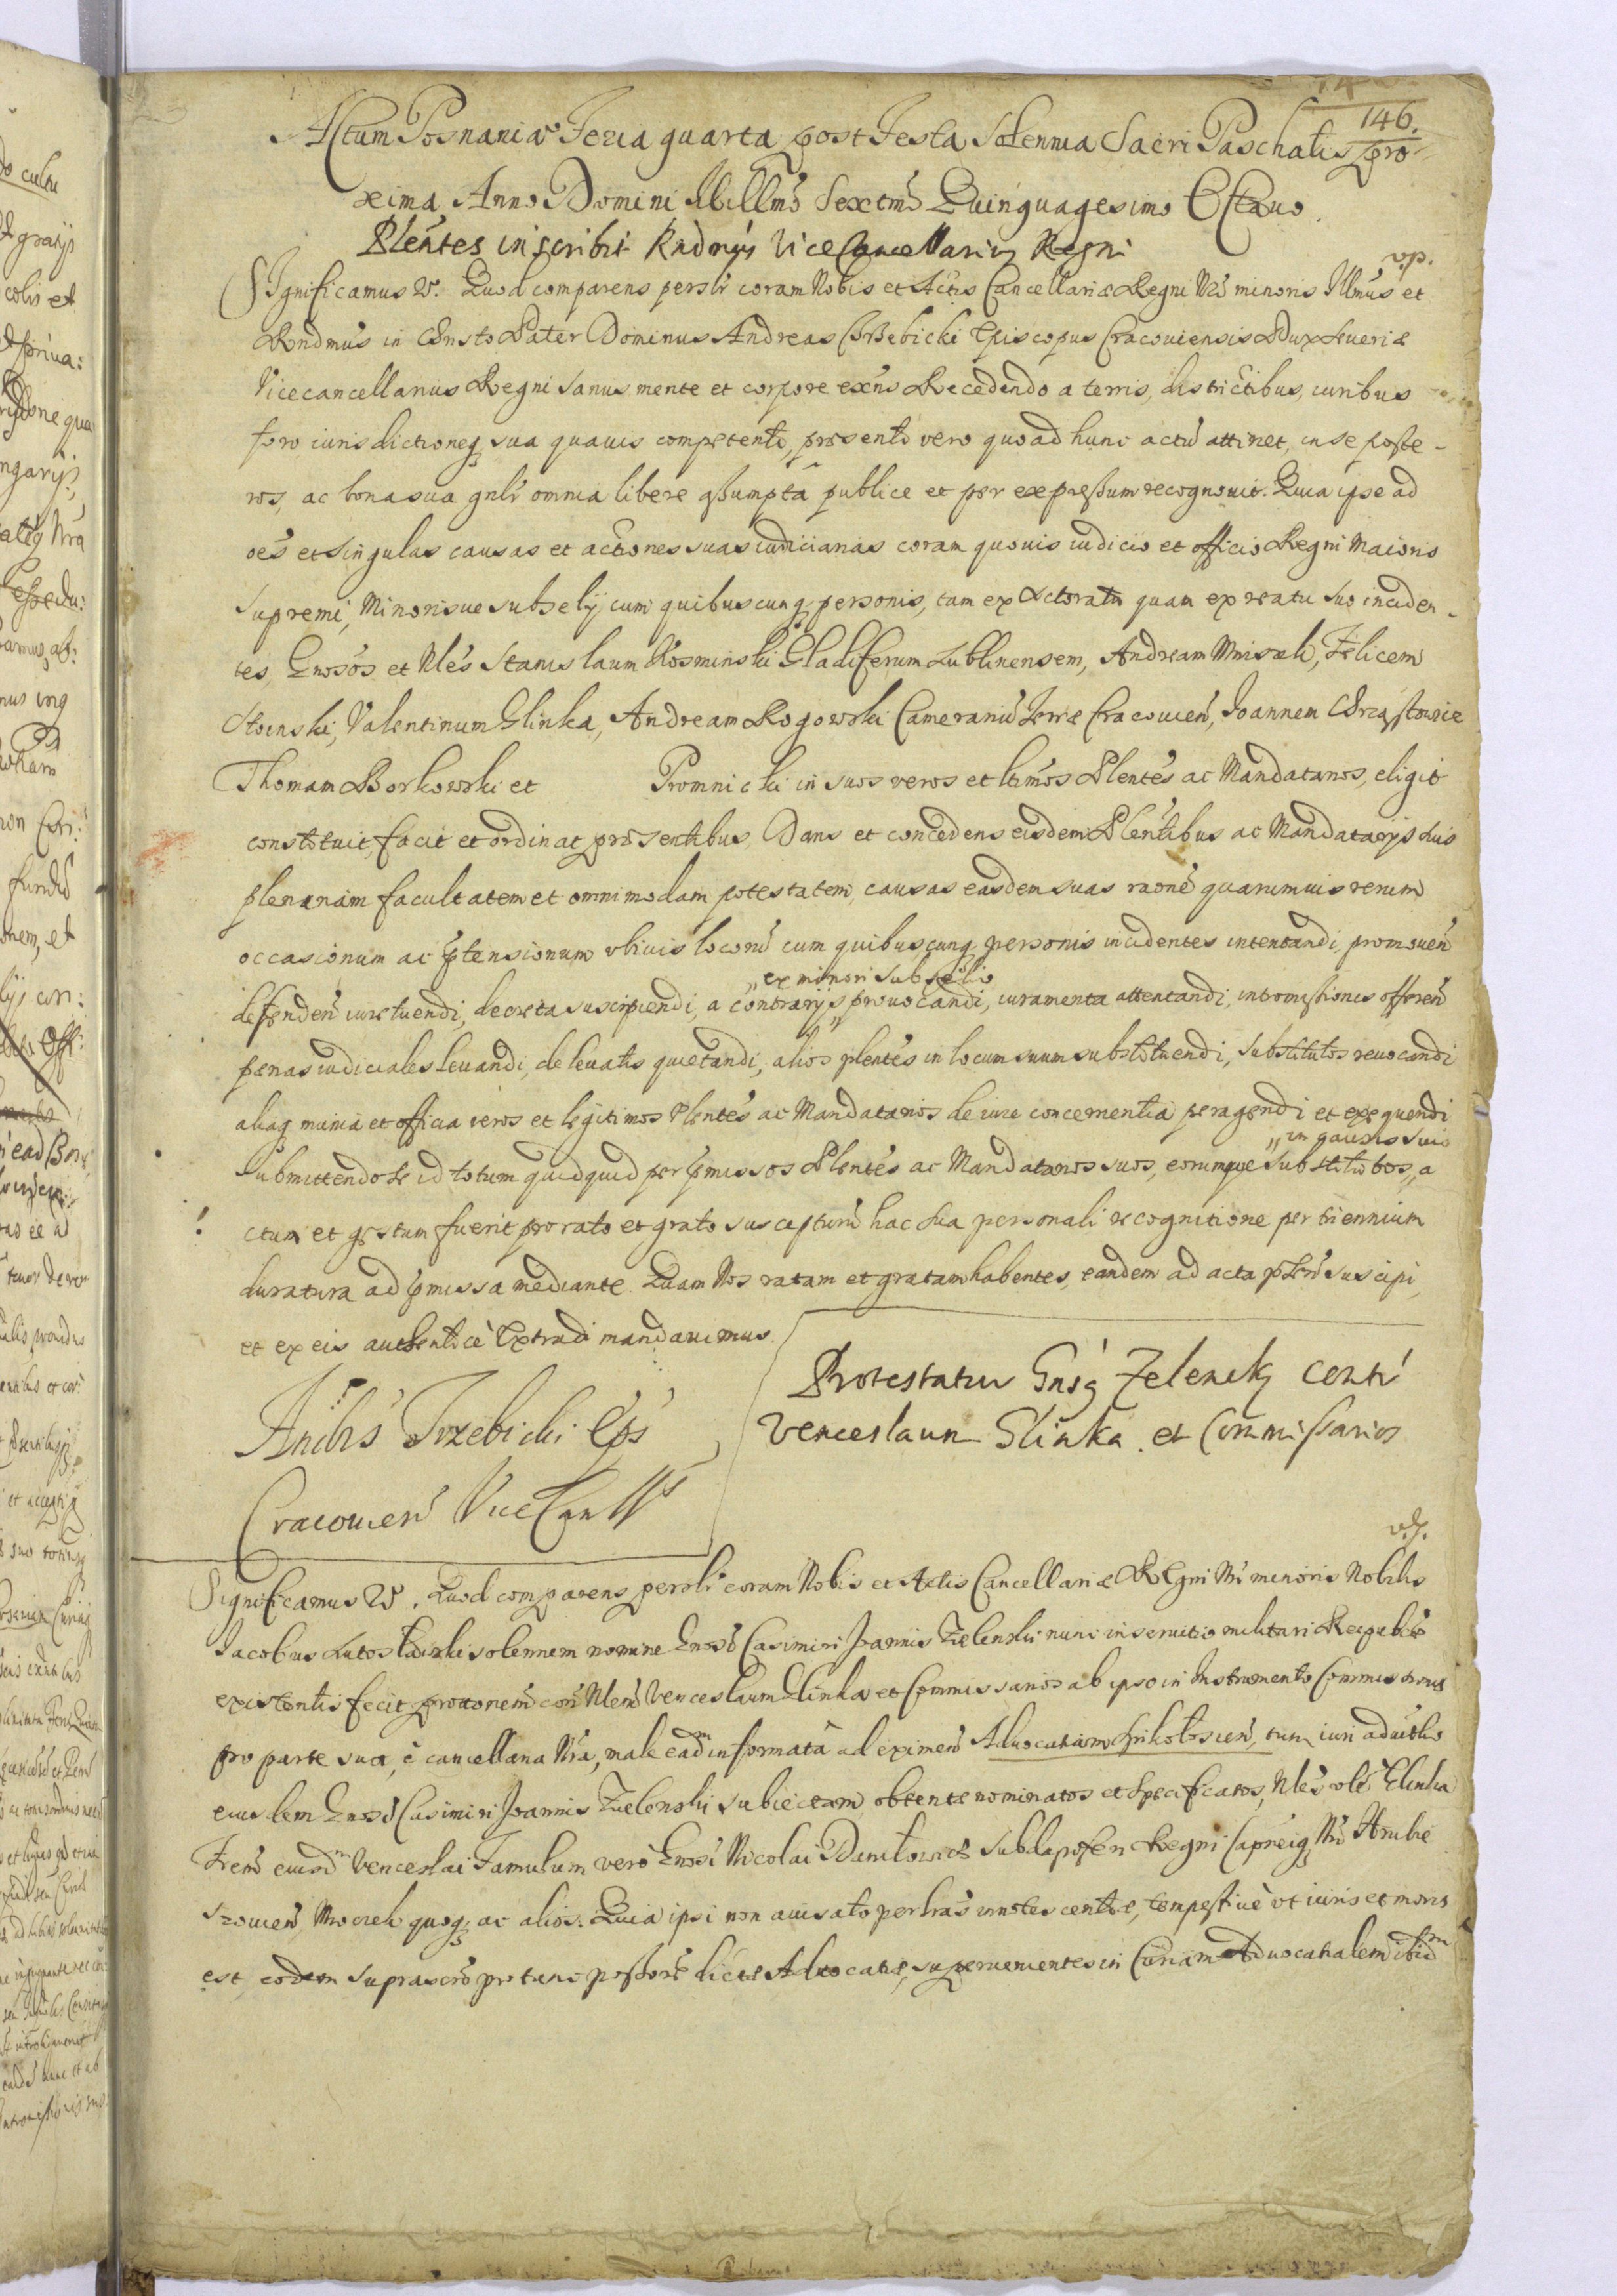 146.
Actum Posnaniæ Feria quarta post Festa Solennia Sacri Paschatis pro
xima Anno Domini Millmo Sextmo Quinquagesimo Octavo.
Plentes inscribit Rndmus Vice Cancellarius Regni
vp.
Significamus &. Quod comparens persolr coram Nobis et Actis Cancellariæ Regni Nri minoris Illmus et
Rndmus in Christo Pater Dominus Andreas Trzebicki Episcopus Cracouiensis Dux Seueriæ
Vicecancellarius Regni sanus mente et corpore exns Recedendo a terris, districtibus, iuribus
foro iurisdictioneq sua quauis competenti, præsenti vero quo ad hunc actu attinet, in se poste-
ros, ac bona sua gnlr omnia libere assumpta publice et per expressum recognouit. Quia ipse ad
oes et singulas causas et actiones suas iudiciarias coram quouis iudicio et officio Regni Maioris
supremi, Minorisue subselij cum quibuscunq personis, tam ex Actoratu quam ex reatu suo inciden-
tes, Gnosos et Nles Stanislaum Kosminski Gladiferum Lublinensem, Andream Mniszek, Felicem
Stoinski, Valentinum Glinka, Andream Rogowski Camerariu Terræ Cracouien, Joannem Chrząstowie
Thomam Borkowski et Promnicki in suos veros et ltimos Plentes ac Mandatarios, eligit
constituit, facit et ordinat præsentibus. Dans et concedens eisdem Plentibus ac Mandatarijs suis
plenariam facultatem et omnimodam potestatem, causas easdem suas raone quarumuis rerum
occasionum ac prætensionum vbiuis locoru cum quibuscunq personis incidentes intentandi, promouen
defenden iure tuendi, decreta suscipiendi, a contrarijs provocandi, iuramenta attentandi, intromissiones offeren
ex minori subsellio
pænas iudiciales leuandi, de leuatis quietandi, alios plentes in locum suum substituendi, substitutos reuocandi
aliaq munia et officia veros et legitimos Plentes ac Mandatarios de iure concernentia peragendi et exequendi
in causis suis
Submittendo se id totum quidquid per præmissos Plentes ac Mandatarios suos, eorumque substitutos, a
ctum et gestum fuerit pro rato et grato suscepturu hac sua personali recognitione per triennium
duratura ad præmissa mediante. Quam Nos ratam et gratam habentes, eandem ad acta pntu suscipi,
et ex eis authentice extradi mandauimus.
Andrs Trzebicki Eps
Cracouien ViceCanllrs
Protestatur Gnsq Zelensky contr
Venceslaum Glinka et Commissarios
vp.
Significamus &. Quod comparens persolr coram Nobis et Actis Cancellariæ Regni Nri minoris Nobilis
Jacobus Lutosławski solennem nomine Gnosi Casimiri Joannis Zielenski nunc in seruitio militari Reipublicæ
existentis fecit prottonem con Nlem Venceslaum Glinka et Commissarios ab ipso in Instrumento Commissionis
pro parte sua, e cancellaria Nra, male eadm informata ad eximen Aduocatiam, tum iuri aduitlio
eiusdem Gnosi Casimiri Joannis Zielenski subiectam, obtente nominatos et specificatos, Nles Glinka
Frem eiusdm Venceslai Famulum vero Gnosi Nicolai Daniłowicz Subdapiferi Regni Capneiq Nri Hrubie
szouien, Mrozek quoq ac alios. Quia ipsi non auisato per lras innotescentiæ, tempestiue vt iuris et moris
est, eodem suprascro pro tunc possore dictæ Aduocatiæ, superuenientes in Curiam Aduocatialem ibidm